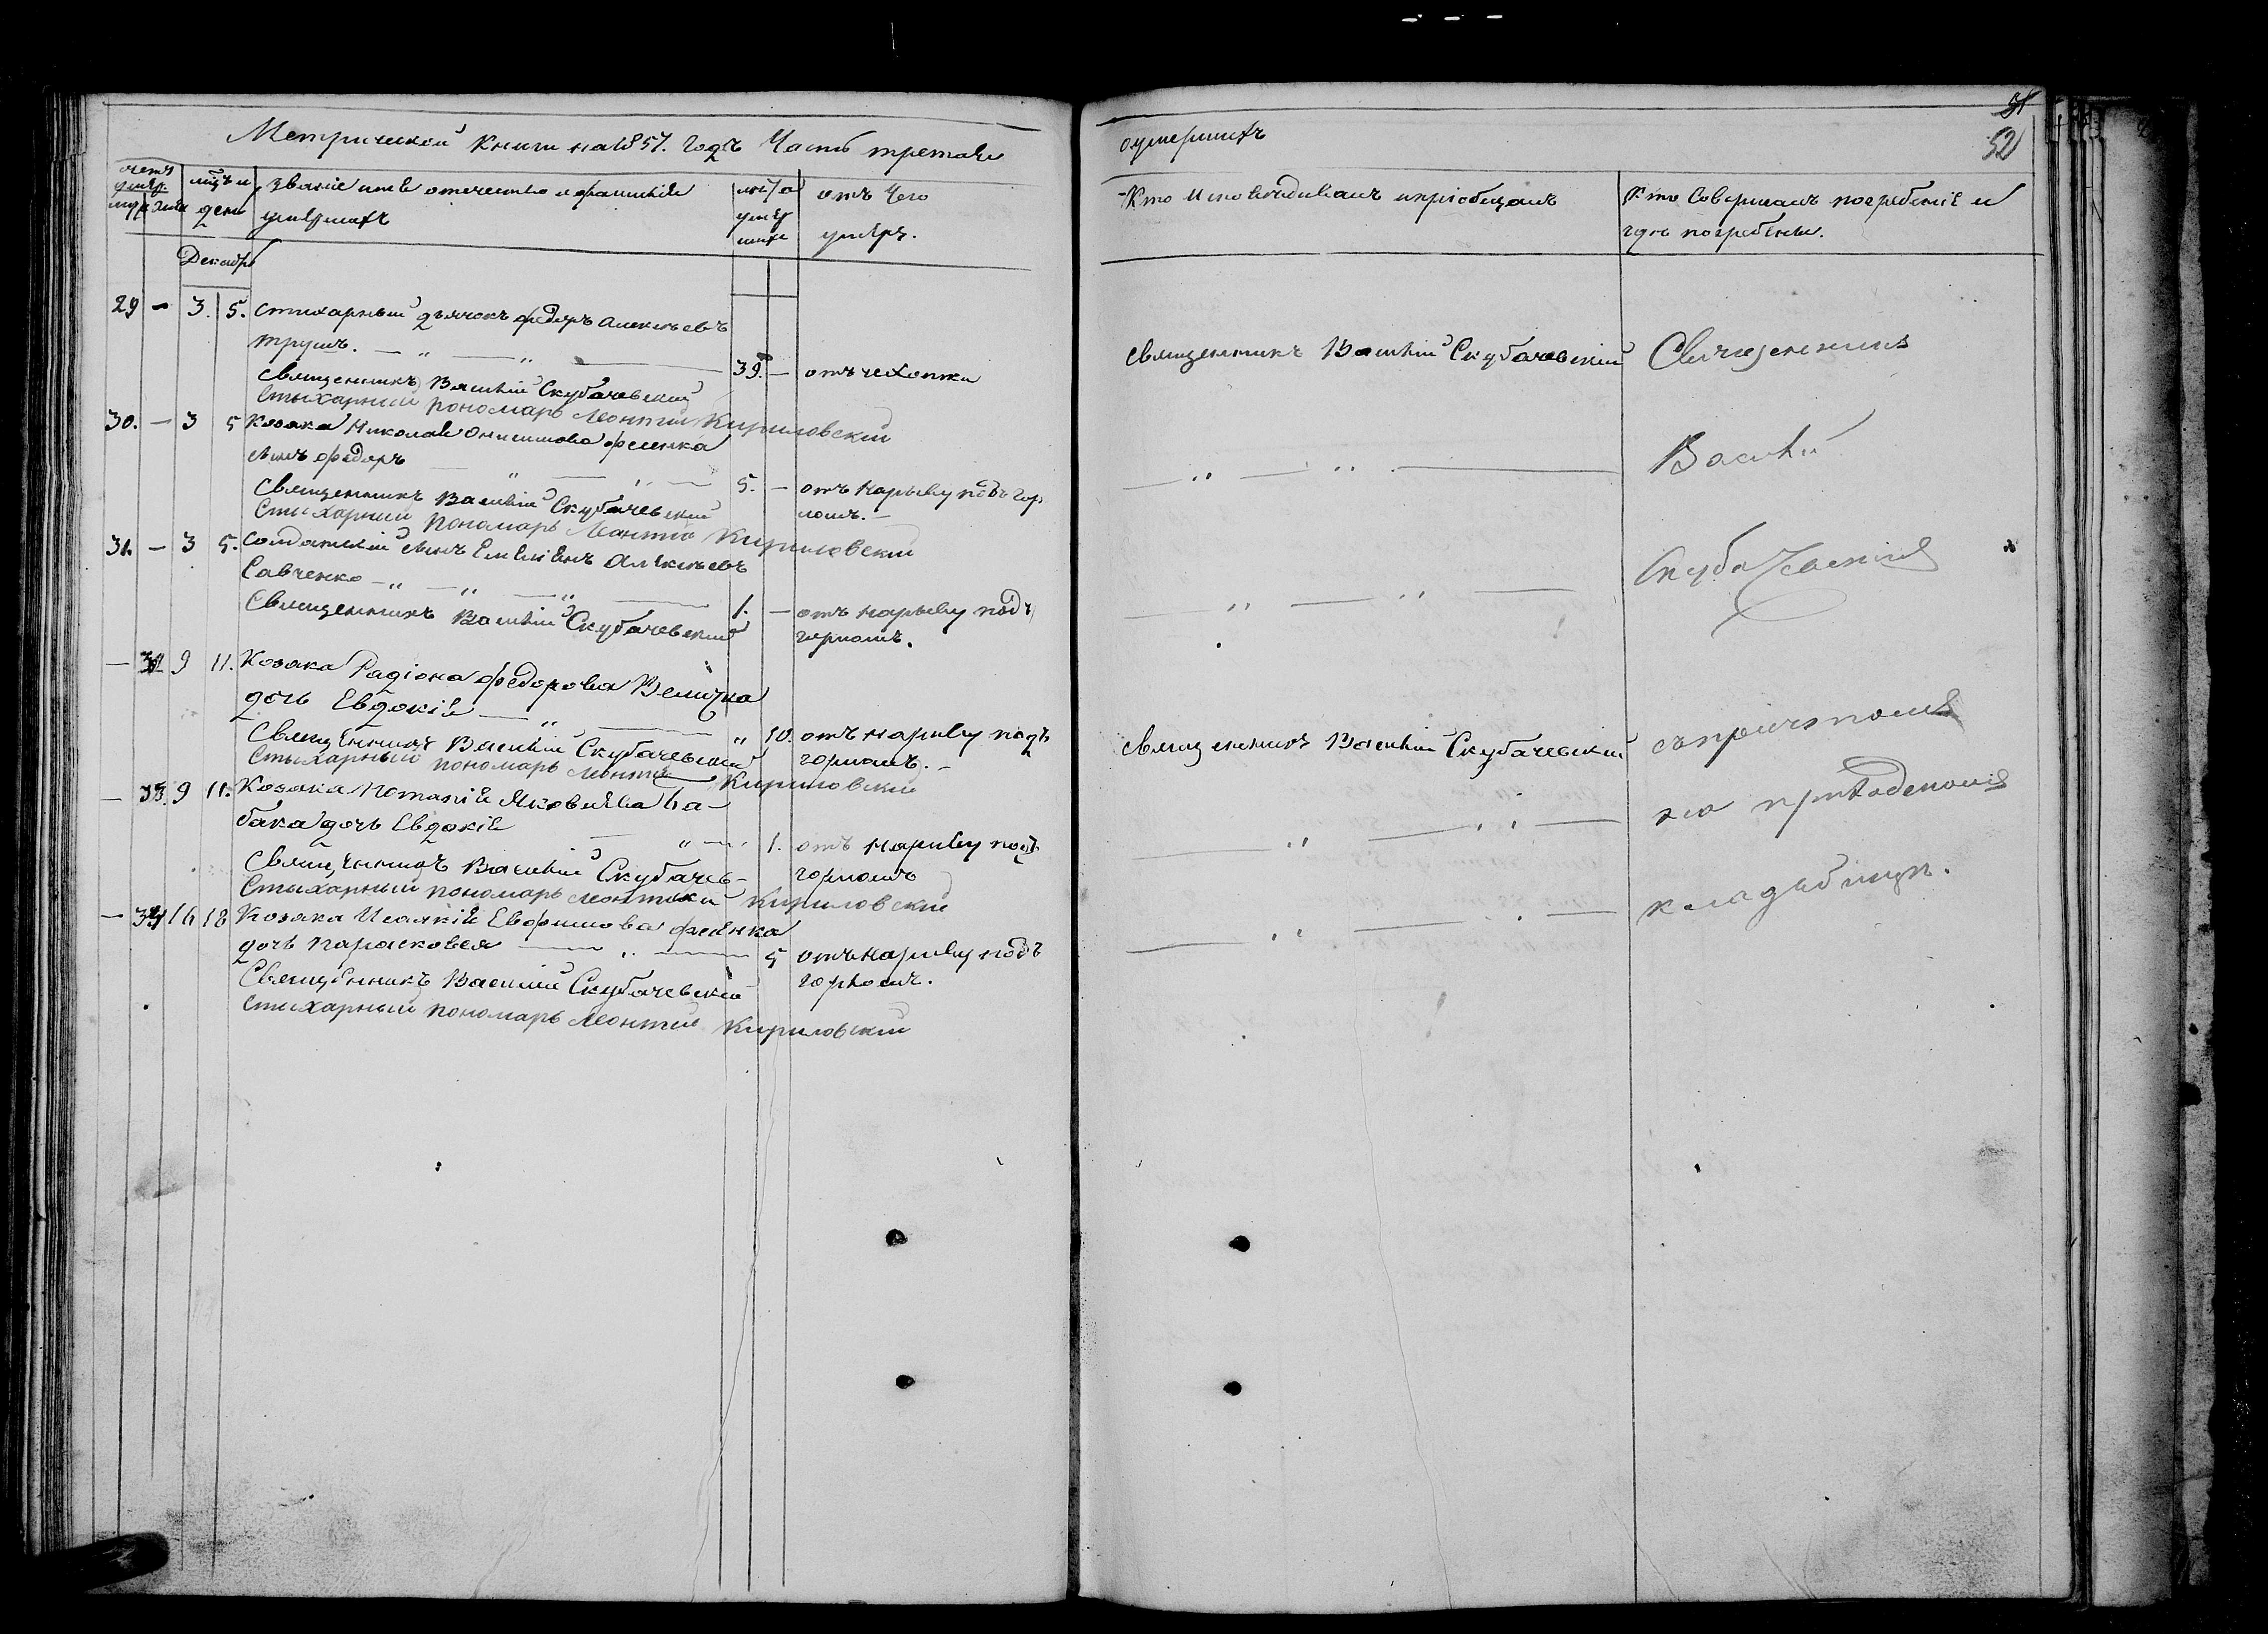 Метрической книги на 1857. годъ Часть третая
о умершихъ
51
52
счетъ умер.
муж. жен.
мцъ и день
званіе имя отечество и фамилія
умершихъ
лѣта умершихъ
отъ чего
умеръ.
Кто исповѣдывалъ и пріобщалъ
Кто Совершалъ погребеніе и
гдѣ погребены.
Декабрь
29 — 3. 5. стихарный дьячокъ федоръ Алексѣевъ
Трушъ. — „ — „ — 39. — отъ чехотки
Священникъ Василій Скубачевскій
Стыхарный пономарь Леонтий Кириловский
священникъ Василій Скубачевскій
Священникъ
30. — 3 5 Козака Николая Онисимова фесенка
сынъ федоръ — „ — „ — 5. — отъ нарыву подъ гор
ломъ. —
Священникъ Василій Скубачевский
Стихарный пономарь Леонтій Кириловский
— „ — „ —
Василій
31. — 3 5. Солдатскій сынъ Емеліянъ Алексѣевъ
Савченко — „ — „ — „ — 1. — отъ нарыву подъ
горломъ.
Священникъ Василій Скубачевский
— „ — „ —
Скубачевскій
— 32 9 11. Козака Радіона федорова Величка
дочь Евдокія — „ — „ 10. отъ нариву подъ
горломъ. —
Священникъ Василій Скубачевский
Стыхарный пономарь Леонтій Кириловский
священникъ Василій Скубачевский
съ причтомъ
— 33. 9 11. Козака Потапія Яковлева Ба-
бака дочь Евдокія — „ — 1. отъ нариву подъ
горломъ
Священникъ Василій Скубачев-
Стыхарный пономарь Леонтий Кириловский
— „ — „ —
на приходскомъ
— 34 16 18 Козака Исаакія Евфимова фесенка
дочь Парасковея — „ — 5 отъ нариву подъ
горломъ.
Священникъ Василій Скубачевский
Стихарный пономарь Леонтий Кириловский
— „ — „ —
кладбищѣ.